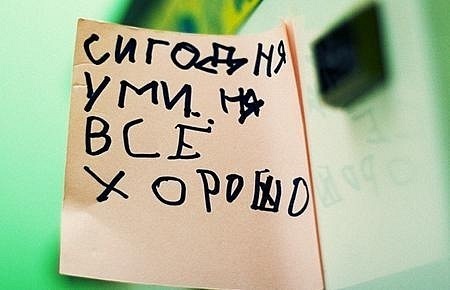 СИГОДНЯ
УМИ.НЯ
ВСЁ
ХОРОШО